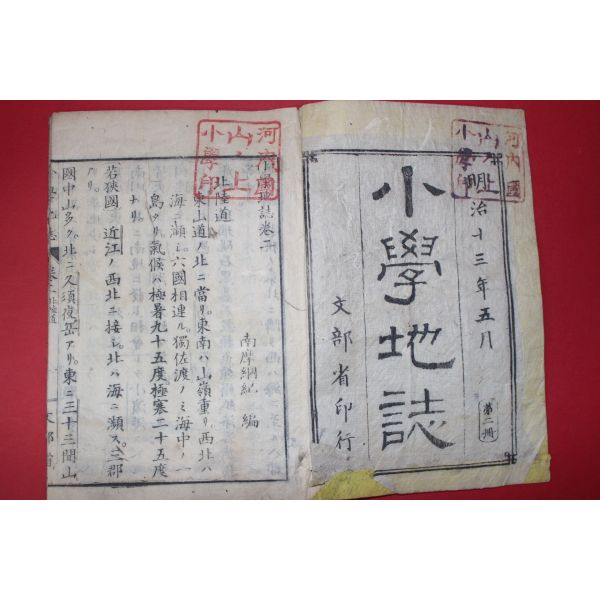 明治十三年五月
小學地誌
第二冊
文部省印行
河内國
山ノ上
小學印
小學地誌卷二
南摩綱紀 編
北陸道
東山道ノ北ニ當リ。東南ハ山嶺重リ。西北ハ
海ニ瀕シ。六國相連ル。獨佐渡ノミ海中ノ一
島タリ。氣候ハ極暑九十五度極寒二十五度
ナリ。
若狹國 近江ノ西北ニ接シ。北ハ海ニ瀕ス。三郡
國中山多ク。北ニ久須夜岳アリ。東ニ三十三間山
河内國
山ノ上
小學印